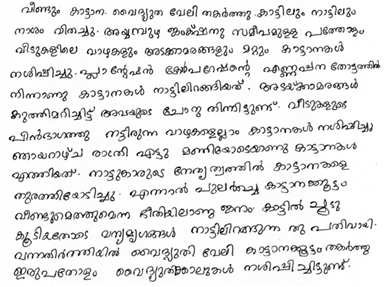 വീണ്ടും കാട്ടാന വൈദ്യുത വേലി തകർത്തു. കാട്ടിലും നാട്ടിലും
നാശം വിതച്ചു. അയ്യമ്പുഴ ജംക്ഷനു സമീപമുള്ള പത്തോളം
വീടുകളിലെ വാഴകളും അടക്കാമരങ്ങളും മറ്റും കാട്ടാനകൾ
നശിപ്പിച്ചു. പ്ലാന്റേഷൻ കോർപറേഷന്റെ എണ്ണപ്പന തോട്ടത്തിൽ
നിന്നാണു കാട്ടാനകൾ നാട്ടിലിറങ്ങിയത്. അടയ്ക്കാമരങ്ങൾ
കുത്തിമറിച്ചിട്ട് അവയുടെ ചോറു തിന്നിട്ടുണ്ട്. വീടുകളുടെ
പിൻഭാഗത്തു നട്ടിരുന്ന വാഴകളെല്ലാം കാട്ടാനകൾ നശിപ്പിച്ചു
ഞായറാഴ്ച രാത്രി എട്ടു മണിയോടെയാണു കാട്ടാനകൾ
എത്തിയത്. നാട്ടുകാരുടെ നേതൃത്വത്തിൽ കാട്ടാനകളെ
തുരത്തിയോടിച്ചു. എന്നാൽ പുലർച്ചെ കാട്ടാനക്കൂട്ടം
വീണ്ടുമെത്തുമെന്ന ഭീതിയിലാണു ജനം. കാട്ടിൽ ചൂടു
കൂടിയതോടെ വന്യമൃഗങ്ങൾ നാട്ടിലിറങ്ങുന്ന തു പതിവായി.
വനാതിർത്തിയിൽ വൈദ്യുതി വേലി കാട്ടാനക്കൂട്ടം തകർത്തു
ഇരുപതോളം വൈദ്യുതക്കാലുകൾ നശിപ്പിച്ചിട്ടുണ്ട്.